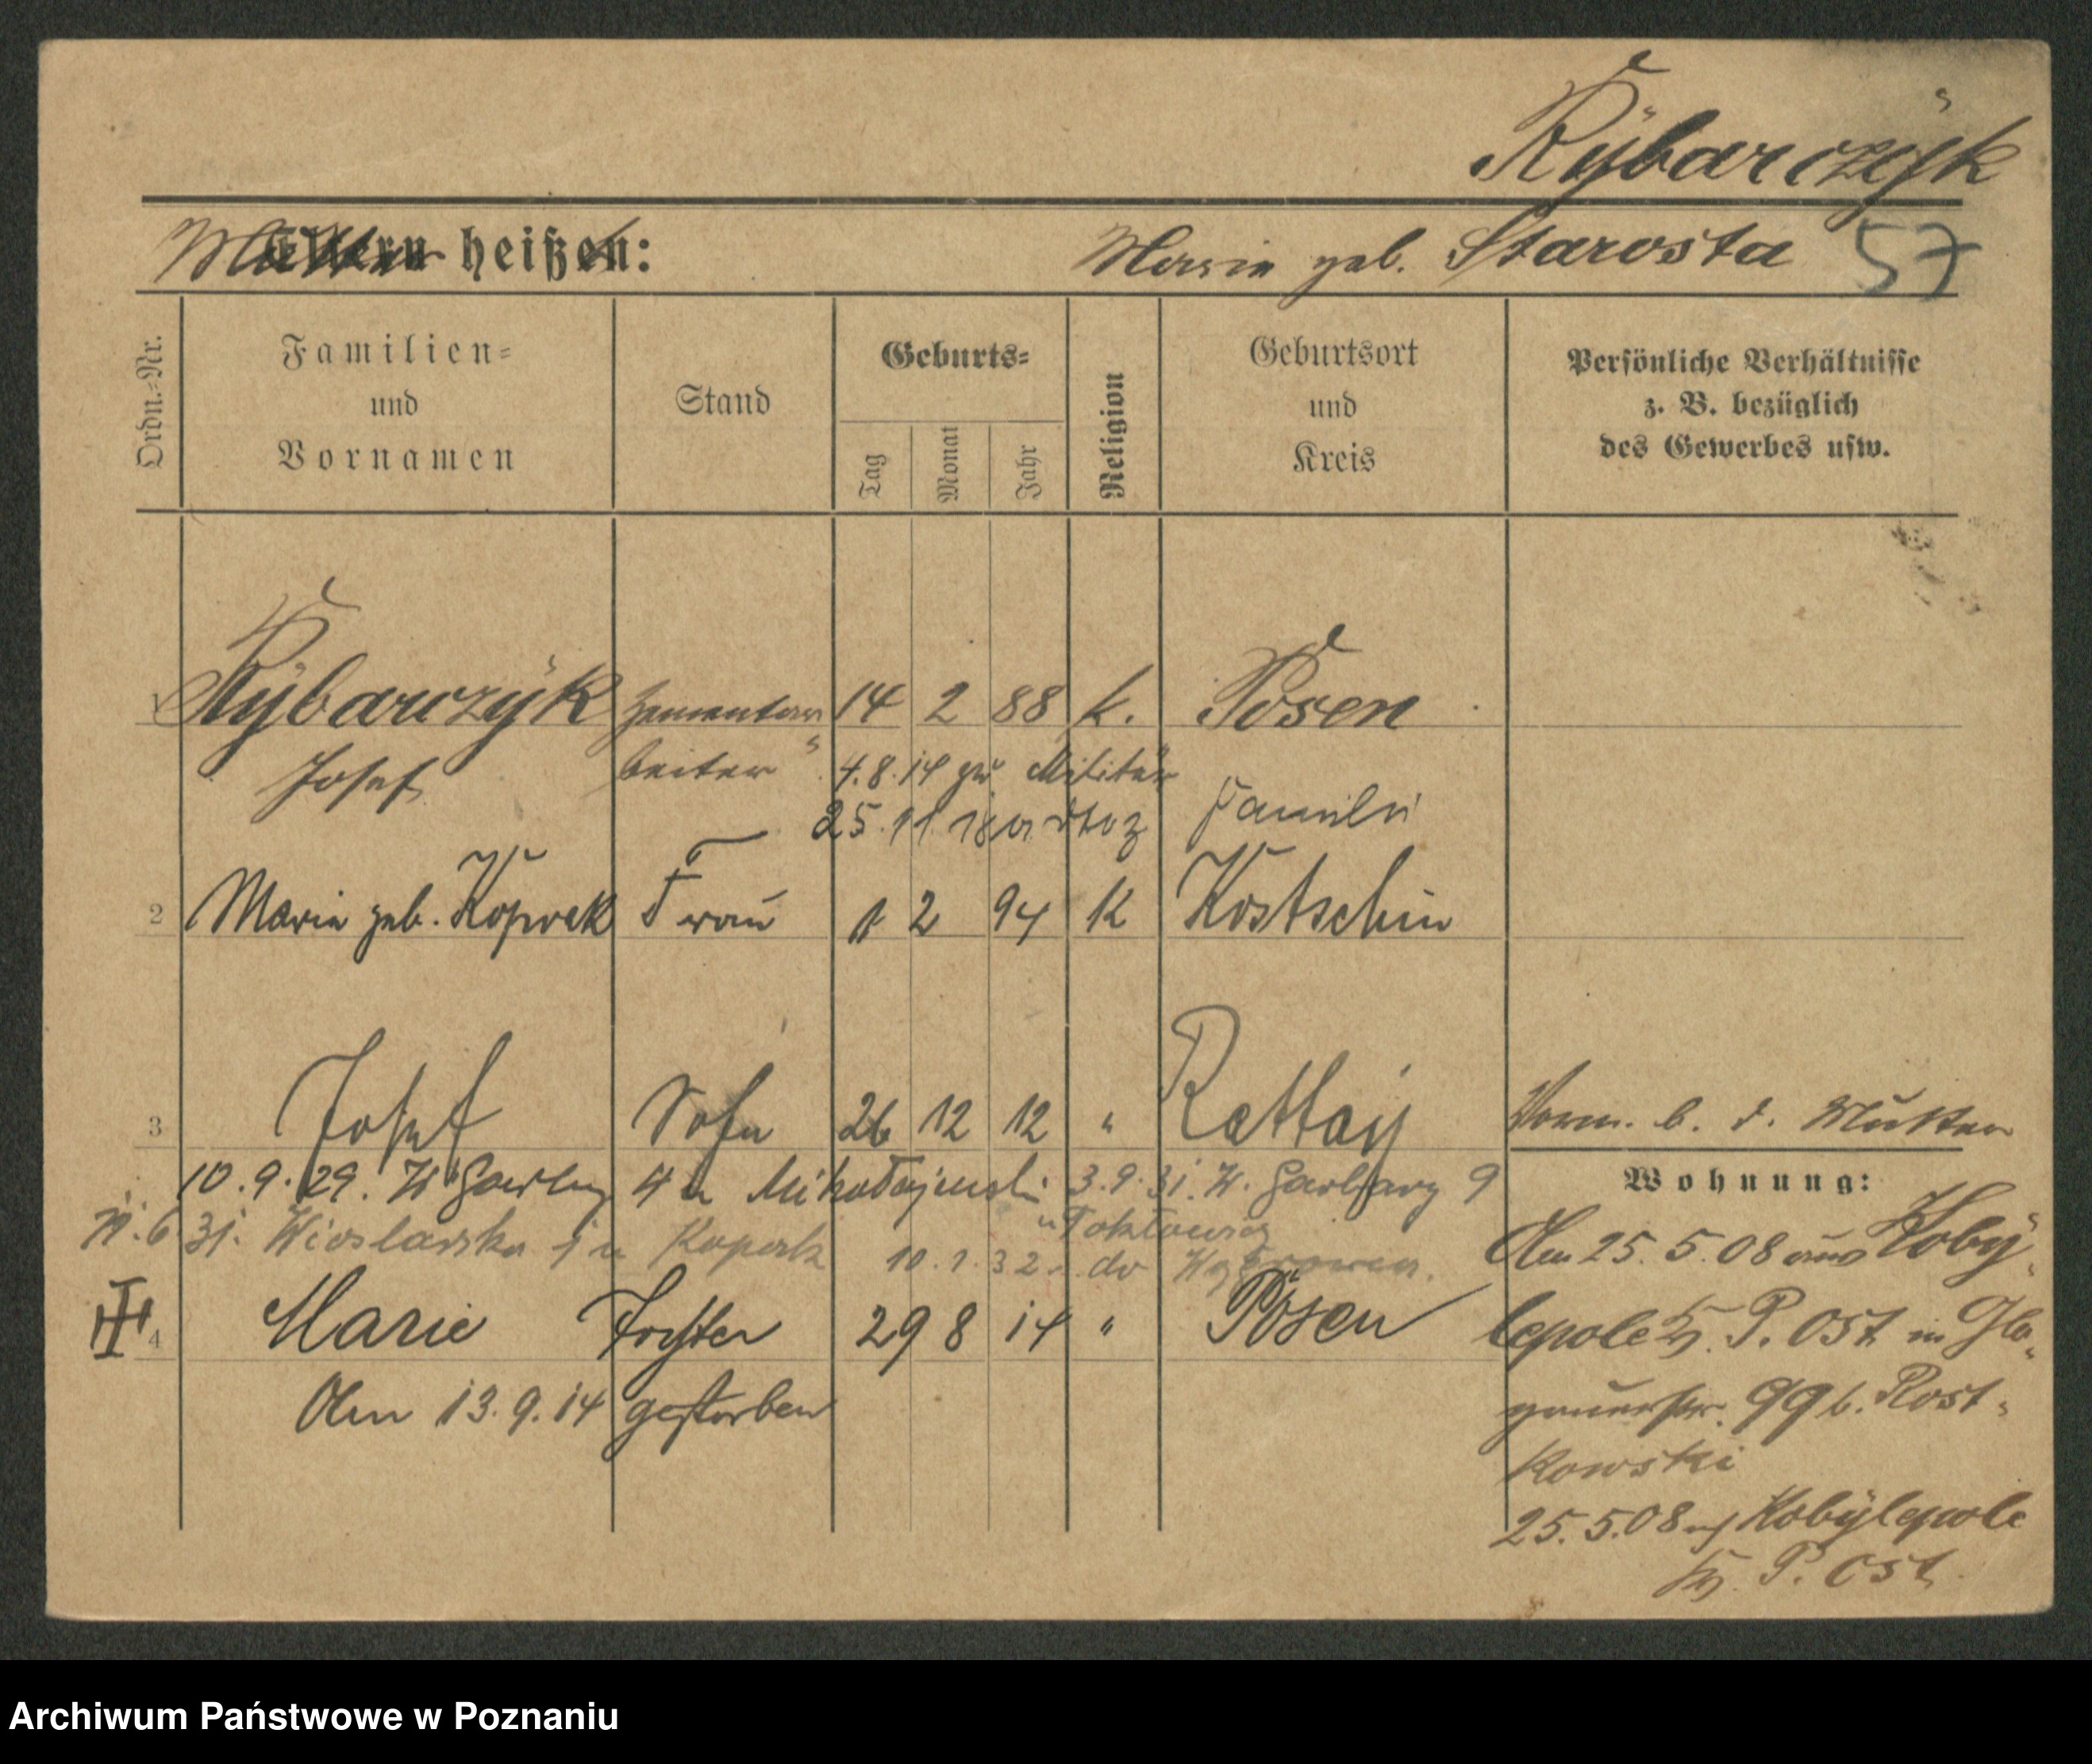 Rÿbarczÿk
Mutter heißt:
Maria geb. Starosta 57
Ordn.-Nr.
Familien-
und
Vornamen
Stand
Geburts-
Tag
Monat
Jahr
Religion
Geburtsort
und
Kreis
Persönliche Verhältnisse
z. B. bezüglich
des Gewerbes usw.
1 Rÿbarczÿk Zementar 14 2 88 k. Posen
Josef beiter 4.8.14 zum Militär
25.11 18 Familie
2 Maria geb. Kopock Frau 1 2 94 K Kostschin
3 Josef Sohn 26 12 12 " Rattay Vorm. b. d. Mutter
10.9.29. W Garbary 4 u Mikołajewski 3.9.31. W. Garbary 9
6 31. Wioslarska u 10.1.32 do
Wohnung:
4 Marie Tochter 29 8 14 " Posen
Am 13.9.14 gestorben
Am 25.5.08 aus Kobÿ-
lepole Kr. P. Ost. in Glo-
gauerstr. 99 b. Rost-
kowski
25.5.08 n/ Kobÿlepole
Kr. P. Ost.
Archiwum Państwowe w Poznaniu